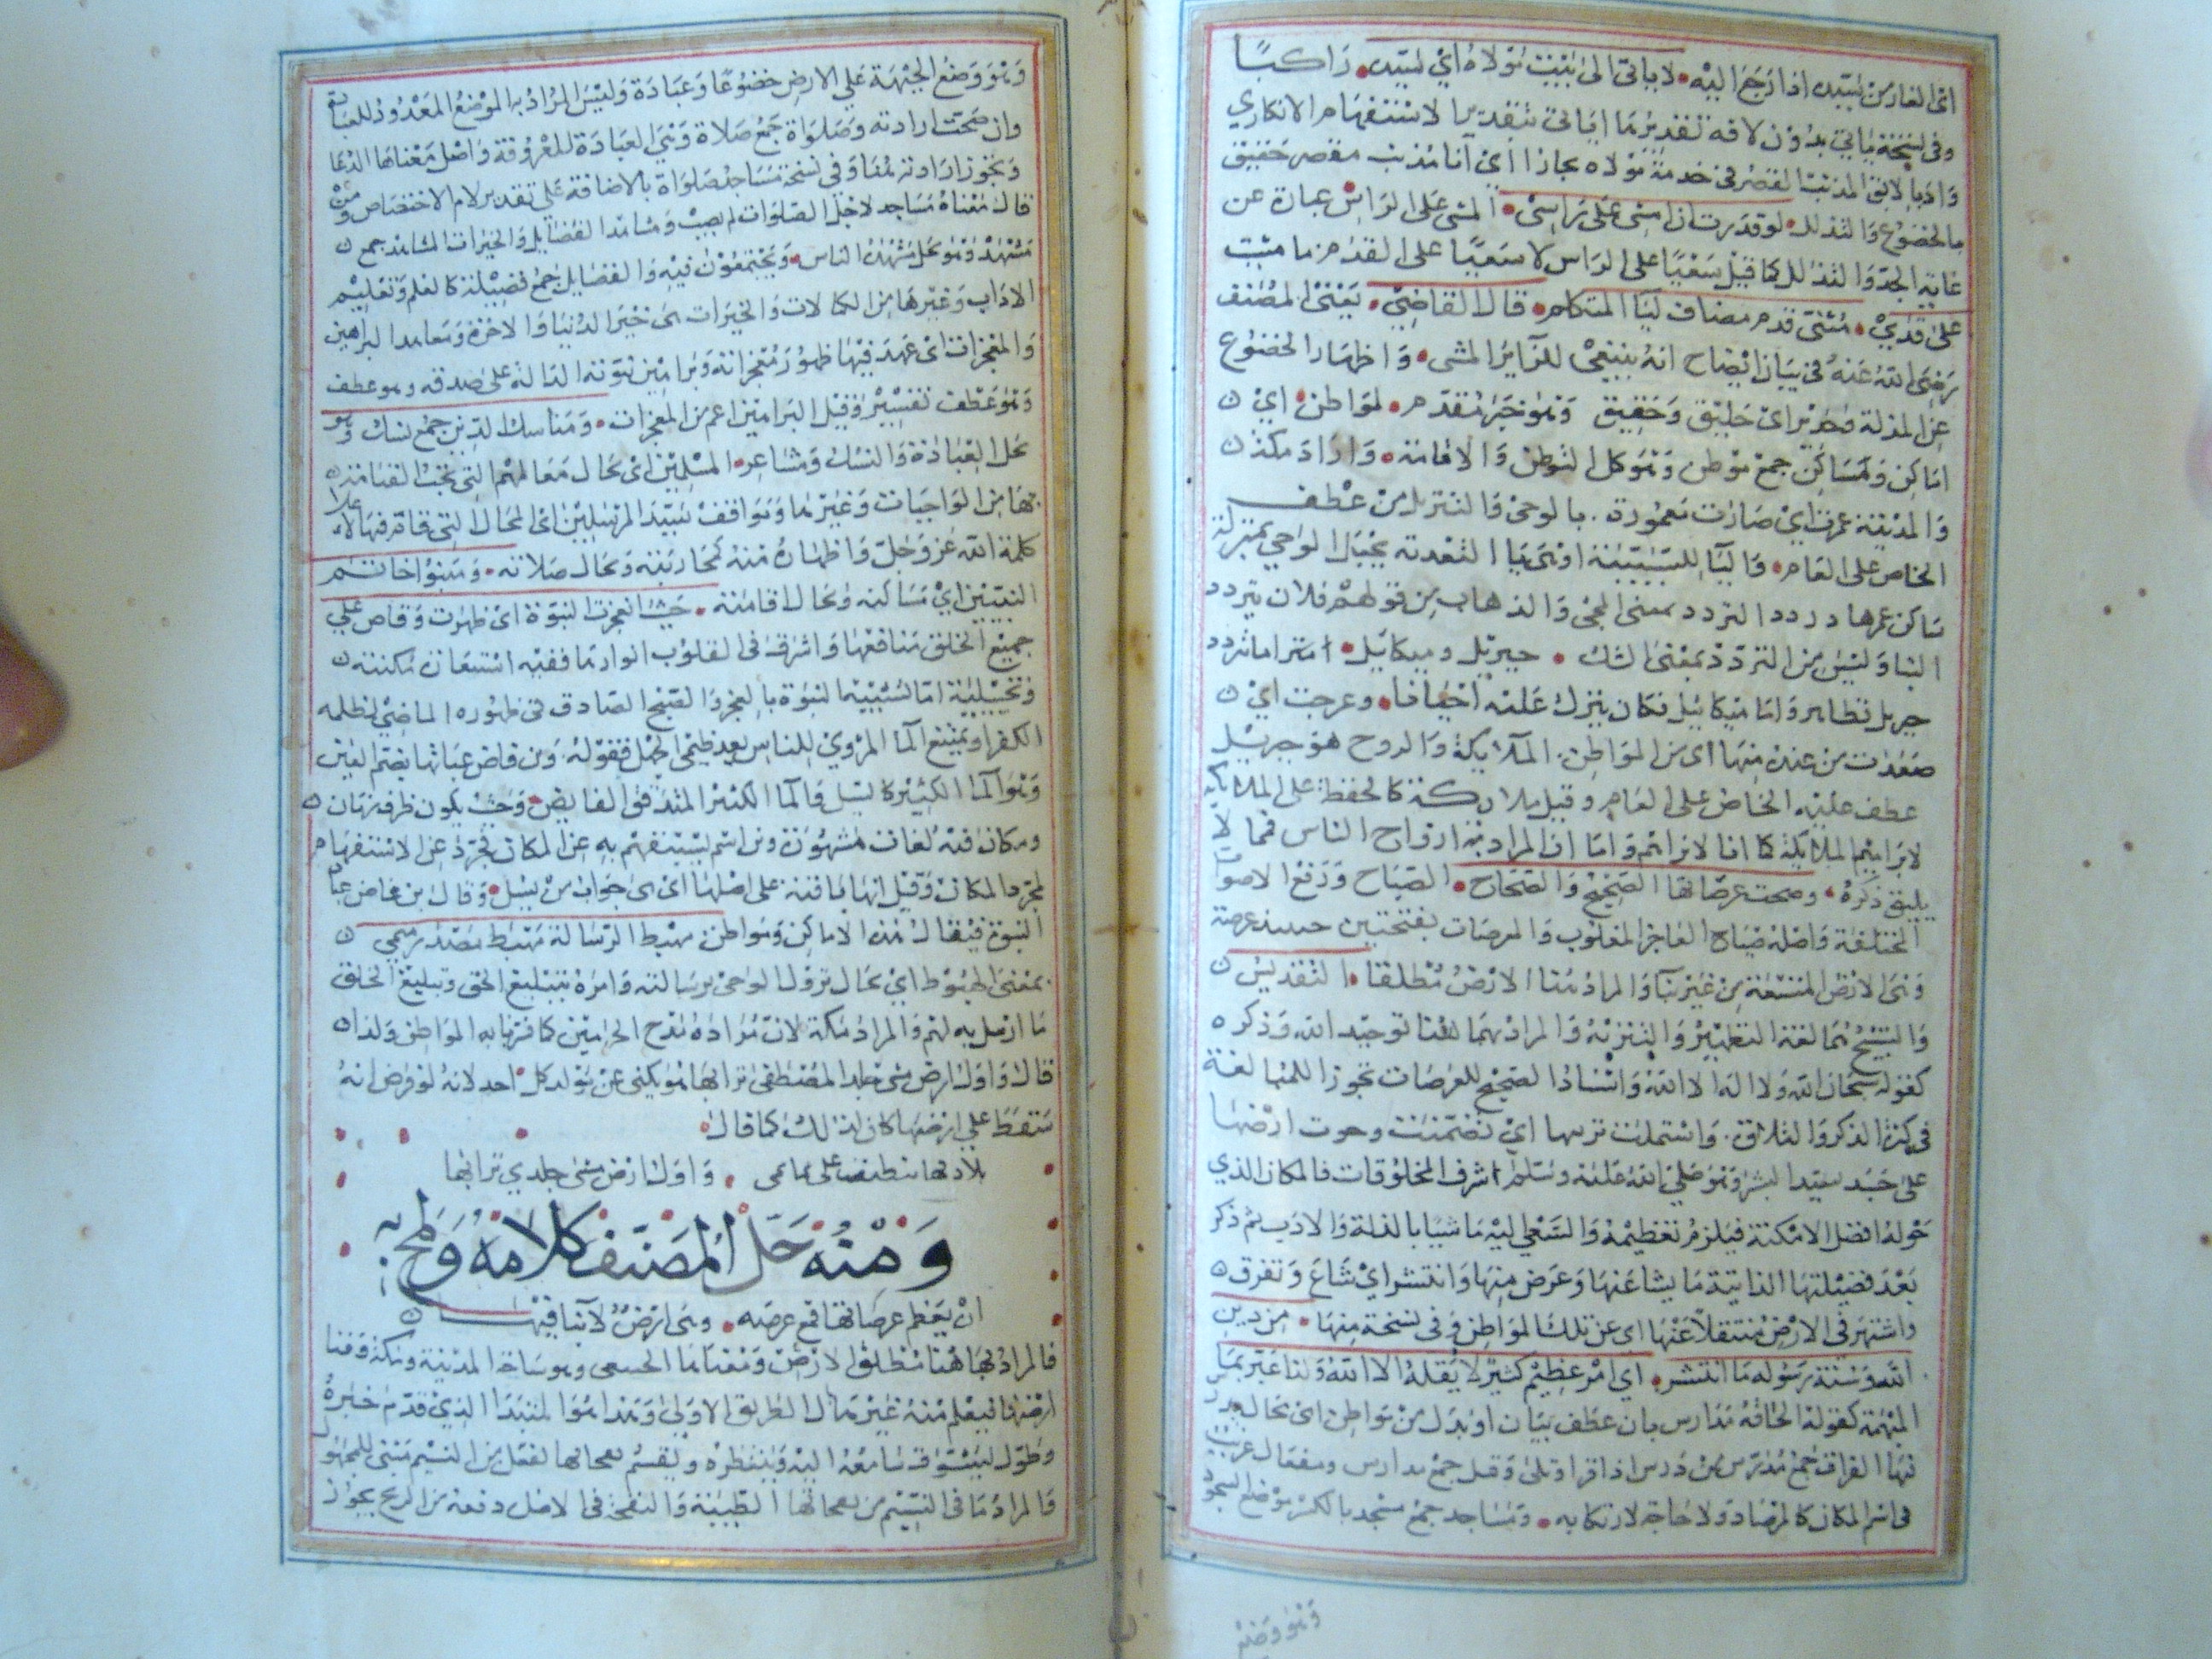 اتى الفار من سيده اذا رجع اليه لا ياتى الى بيت مولاه اي سيده راكبا
وفى نسخة ياتي بدون لا فه تقديره اياتى بتقدير الاستفهام الانكاري
لايق المذنب المقصر فى خدمة مولاه مجازا اى انا مذنب مقصر حقيق
بالخضوع والتذلل لو قدرت ان امشى على راسى المشى على الراس عبارة عن
غاية الجد والتذلل كما قيل سعيا على الراس لا سعيا على القدم ما مشيت
على قدمي مثنى قدم مضاف ليا المتكلم قال القاضي يعنى المصنف
رضى الله عنه فى بيان ايضاح انه ينبغى للزاير المشى واظهار الخضوع
عن المذلة وجدير اى خليق وحقيق وهو خبر مقدم لمواطن اي
اماكن ومساكن جمع موطن وهو محل التوطن والاقامة واراد مكة
والمدينة عمرت اي صارت معمورة بالوحى والتنزيل من عطف
الخاص على العام والبا للسببية او هى با التعدية بجعل الوحي بمنزلة
ساكن عمرها وتردد التردد بمعنى المجى والذهاب من قولهم فلان يتردد
الينا وليس من التردد بمعنى الشك جبريل وميكائيل اما تردد
جبريل فظاهر واما ميكائيل فكان ينزل عليه احيانا وعرجت اي
صعدت من عنده منها اى من المواطن الملايكة والروح هو جبريل
عطف عليه الخاص على العام وقيل ملايكة كالحفظة على الملايكة
لا يراهم الملايكة كما انا لا نراهم واما ان المراد به ارواح الناس فمما لا
يليق ذكره وضجت عرصاتها الضجيج والضجاج الصياح ورفع الاصوات
المختلفة واصله صياح العاجز المغلوب والعرصات بفتحتين جمع عرصة
وهى الارض المتسعة من غير بنا والمراد هنا الارض مطلقا التقديس
والتسبيح هما لغة التطهير والتنزيه والمراد بهما هنا توحيد الله وذكره
كقوله سبحان الله ولا اله الا الله واسناد الضجيج للعرصات تجوز للمبالغة
فى كثرة الذكر والتلاوة واشتملت تربتها اي تضمنت وحوت ارضها
على جسد سيد البشر وهو صلى الله عليه وسلم اشرف المخلوقات فالمكان الذي
حوله افضل الامكنة فيلزم تعظيمه والسعي اليه ماشيا بالذلة والادب ثم ذكر
بعد فضيلتها الذاتية ما ينشا عنها وعرض منها وانتشر اي شاع وتفرق
واشتهر فى الارض منتقلا عنها اى عن تلك المواطن وفى نسخة منها من دين
الله وسنة رسوله ما انتشر اي امر عظيم كثير لا يعلمه الا الله ولذا عبر بما
المبهمة كقوله الحاقة مدارس بان عطف بيان او بدل من مواطن اى محال يدرس
فيها القران جمع مدرس من درس اذا قرا وتلى وقيل جمع مدارس ومفعال غريب
فى اسم المكان كالمرصاد ولا حاجة لارتكابه ومساجد جمع مسجد بالكسر موضع السجود
وهو وضع
وهو وضع الجبهة على الارض خضوعا وعبادة وليس المراد به الموضع المعدود للعبادة
وان صحت ارادته وصلوات جمع صلاة وهى العبادة المعروفة واصل معناها الدعا
ويجوز ارادته هنا وفى نسخة مساجد صلوات بالاضافة على تقدير لام الاختصاص ومن
قال معناه مساجد لاجل الصلوات لم يصب ومشاهد الفضايل والخيرات المشاهد جمع
مشهد وهو محل يشهده الناس ويجتمعون فيه والفضايل جمع فضيلة كالعلم وتعليم
الاداب وغيرها من الكمالات والخيرات هى خير الدنيا والاخرة ومعاهد البراهين
والمعجزات اى عهد فيها ظهور معجزاته وبراهين نبوته الدالة على صدقه وهو عطف
وهو عطف تفسير وقيل البراهين اعم من المعجزات ومناسك الدين جمع نسك وهو
محل العبادة والنسك ومشاعر المسلمين اى محال معالمهم التى يجب القيام
بها من الواجبات وغيرها ومواقف سيد المرسلين اى المحال التى قام فيها لاعلا
كلمة الله عز وجل واظهاره منه كمحاربته ومحال صلاته ومتبوا خاتم
النبيين اي مساكنه ومحال اقامته حيث انفجرت النبوة اى ظهرت وفاض علي
جميع الخلق منافعها واشرقت فى القلوب انوارها ففيه استعارة مكنية
وتخييلية اما لتشبيه النبوة بالفجر والصبح الصادق فى ظهوره الماضي لظلمة
الكفر او بمنبع الما المروي للناس بعد ظمى الجهل فقوله وين فاض عبابها بضم العين
وهو الما الكثير كالسيل والما الكثير المتدفق الفايض وحيث يكون ظرف زمان
ومكان فيه لغات مشهورة وين اسم يستفهم به عن المكان تجرد عن الاستفهام
لمجرد المكان وقيل انها باقية على اصلها اى هى جواب من يسل وقال بن فاض عباب
النبوة فيقال هذه الاماكن ومواطن مهبط الرسالة مهبط مصدر ميمي
بمعنى الهبوط اي محال نزول الوحى برسالته وامره بتبليغ الحق وتبليغ الخلق
ما ارسل به لهم والمراد مكة لان مراده مدح الحرمين كما فسرنا به المواطن ولذا
قال واول ارض مس جلد المصطفى ترابها هو يكنى عن مولد كل احد لانه لو فرض انه
سقط علي ارضها كان لذلك كما قال
بلاد بها نيطت على تمائمى واول ارض مس جلدي ترابها
ومنه حل المصنف كلامه ولمح به
ان يعظم عرصاتها جمع عرصة وهى ارض لا بنا فيها
فالمراد بها هنا مطلق الارض ومعناها الحقيقى وهو ساحة المدينة ومكة وفنا
ارضها فيعلم منه غيرها بالطريق الاولى وهذا هو المبتدا الذي قدم خبره
وطول ليتشوق سامعه اليه وينتظره وتنسم نفحاتها تفعل من النسيم مبنى للمجهول
والمراد ما فى النسيم من نفحاتها الطيبة والنفحة فى الاصل دفعة من الريح تجوز